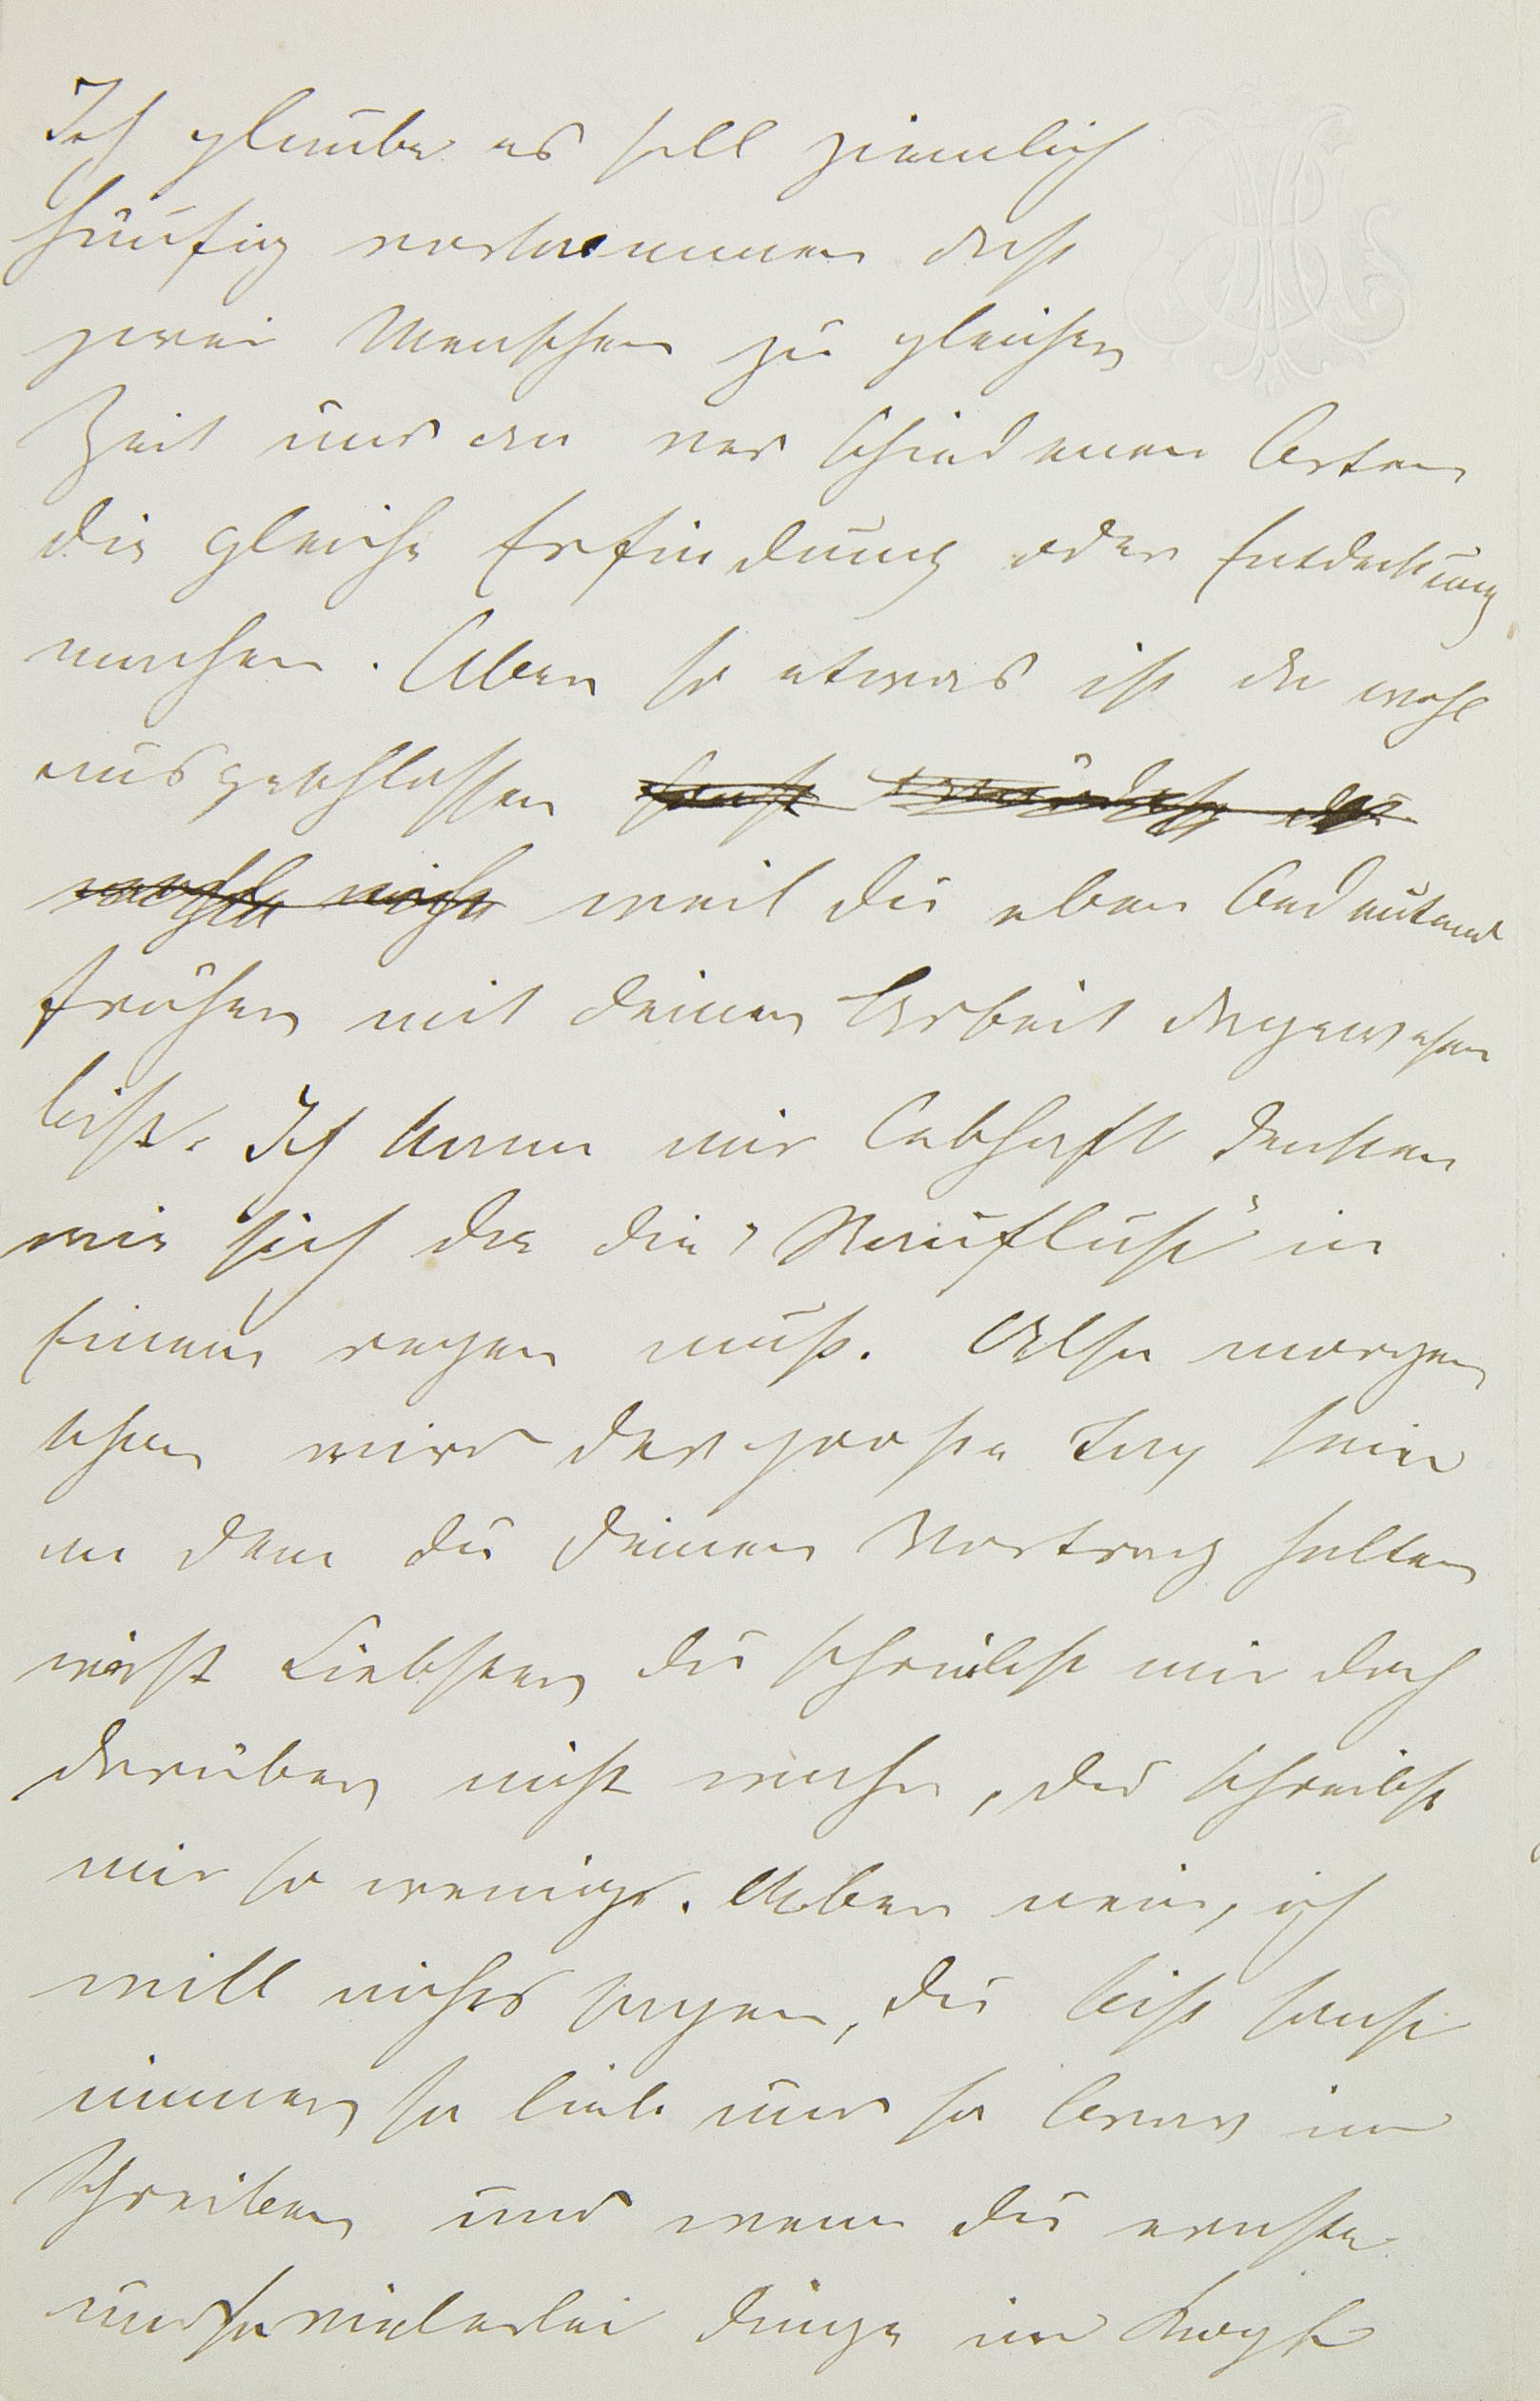 Ich glaube es soll ziemlich
häufig vorkommen daß
zwei Menschen zu gleicher
Zeit und an verschiedenen Orten
die gleiche Erfindung oder Entdeckung
machen. Aber so etwas ist da wohl
ausgeschlossen sonst würdest du
nicht weil du eben bedeutend
früher mit deiner Arbeit dagewesen
bist. Ich kann mir lebhaft denken
wie sich da die "Rauflust" in
Einem regen muß. Also morgen
schon wird der große Tag sein
an dem du deinen Vortrag halten
wirst Liebster, du schreibst mir doch
darüber nicht wahr, du schreibst
mir so wenig. Aber nein, ich
will nichts sagen, du bist sonst
immer so lieb und so brav im
Schreiben und wenn du ernste
und so vielerlei Dinge im Kopf